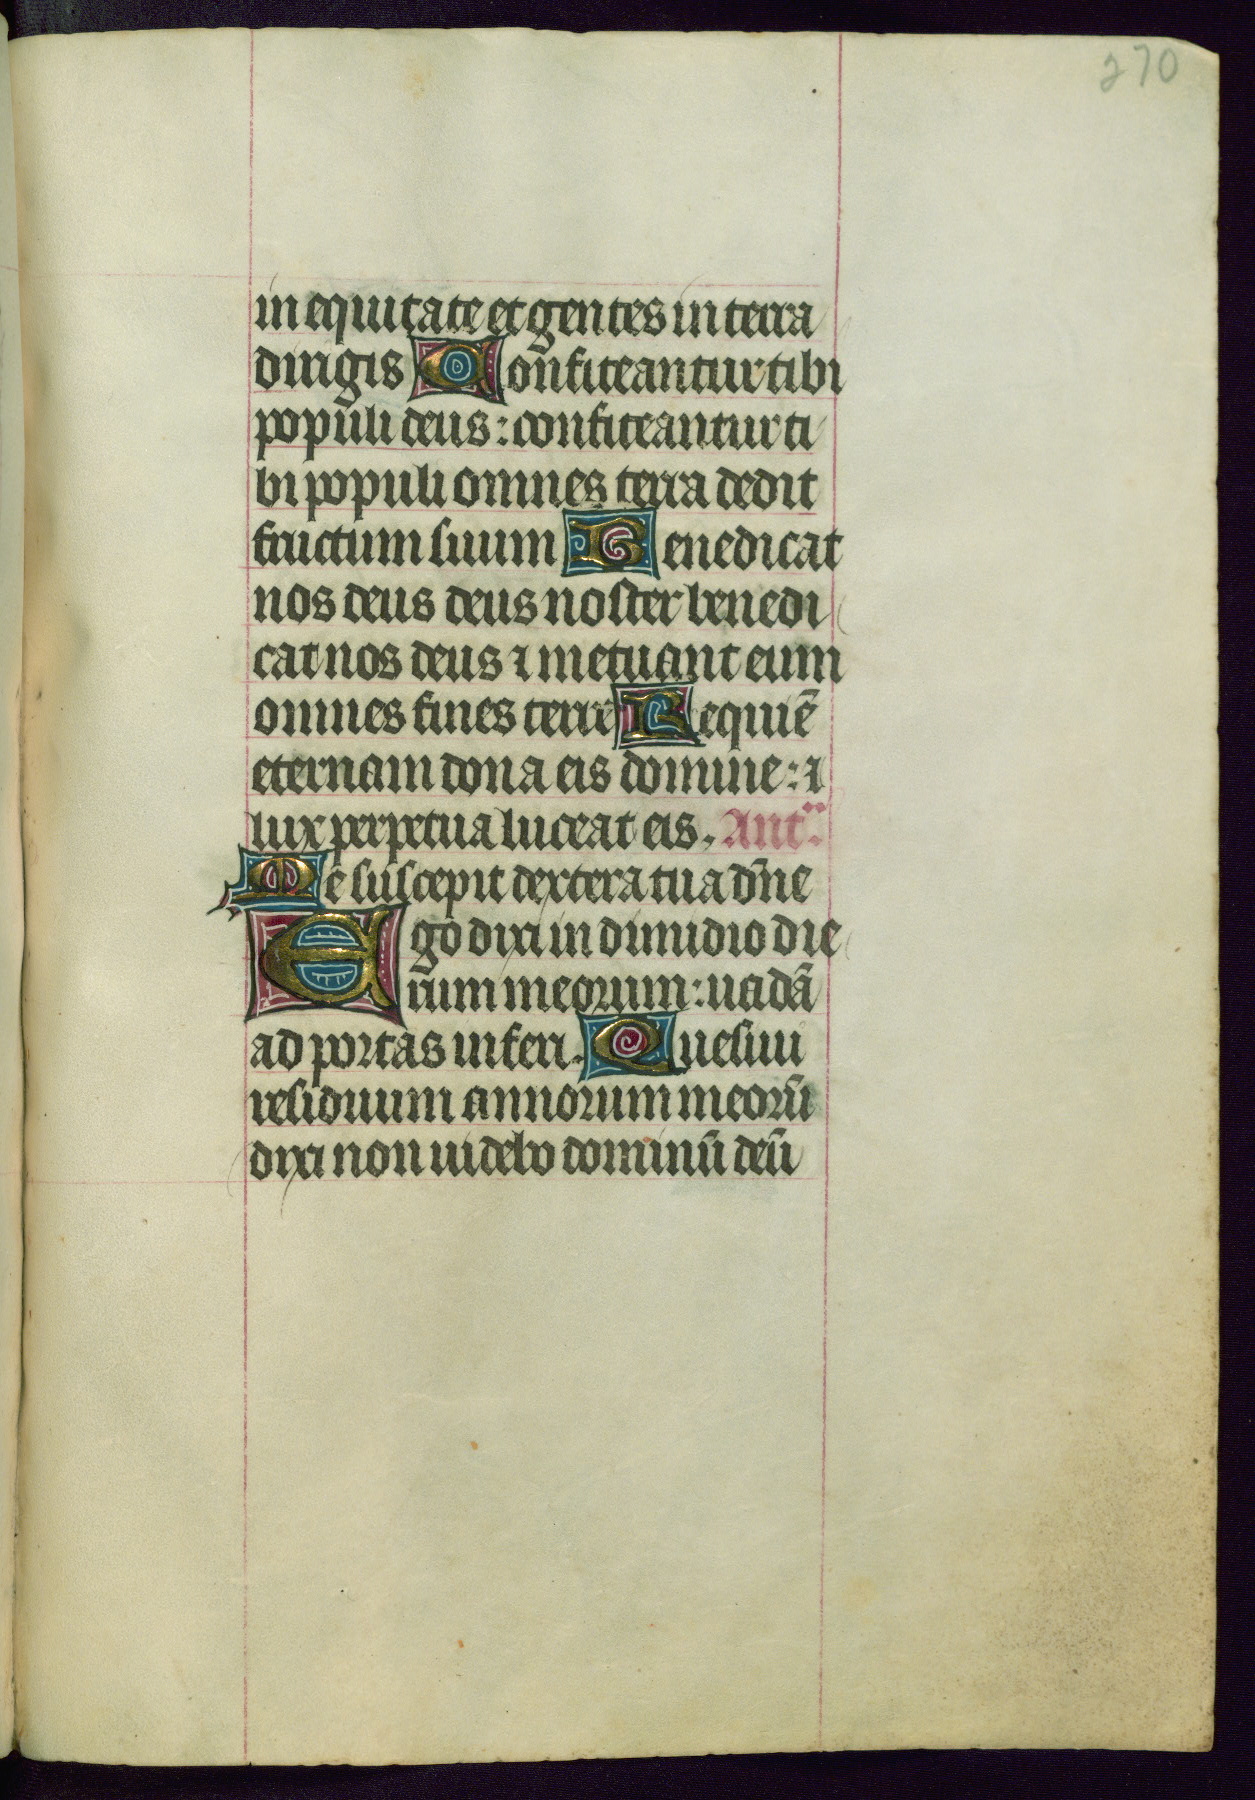 270
in equitate et gentes in terra
dirigis Con̄fiteantur tibi
populi deus: confiteantur ti
bi populi omnes terra dedit
fructum suum Benedicat
nos deus deus noster benedi
cat nos deus ⁊ metuant eum
omnes fines terre Requiē
eternam dona eis domine: ⁊
lux perpetua luceat eis. Ant̃.
Me suscepit dextera tua dn̄e
Ego dixi in dimidio die
rum meorum: uadā
ad portas inferi. Quesiui
residuum annorum meorū
dixi non uidebo dominū deū